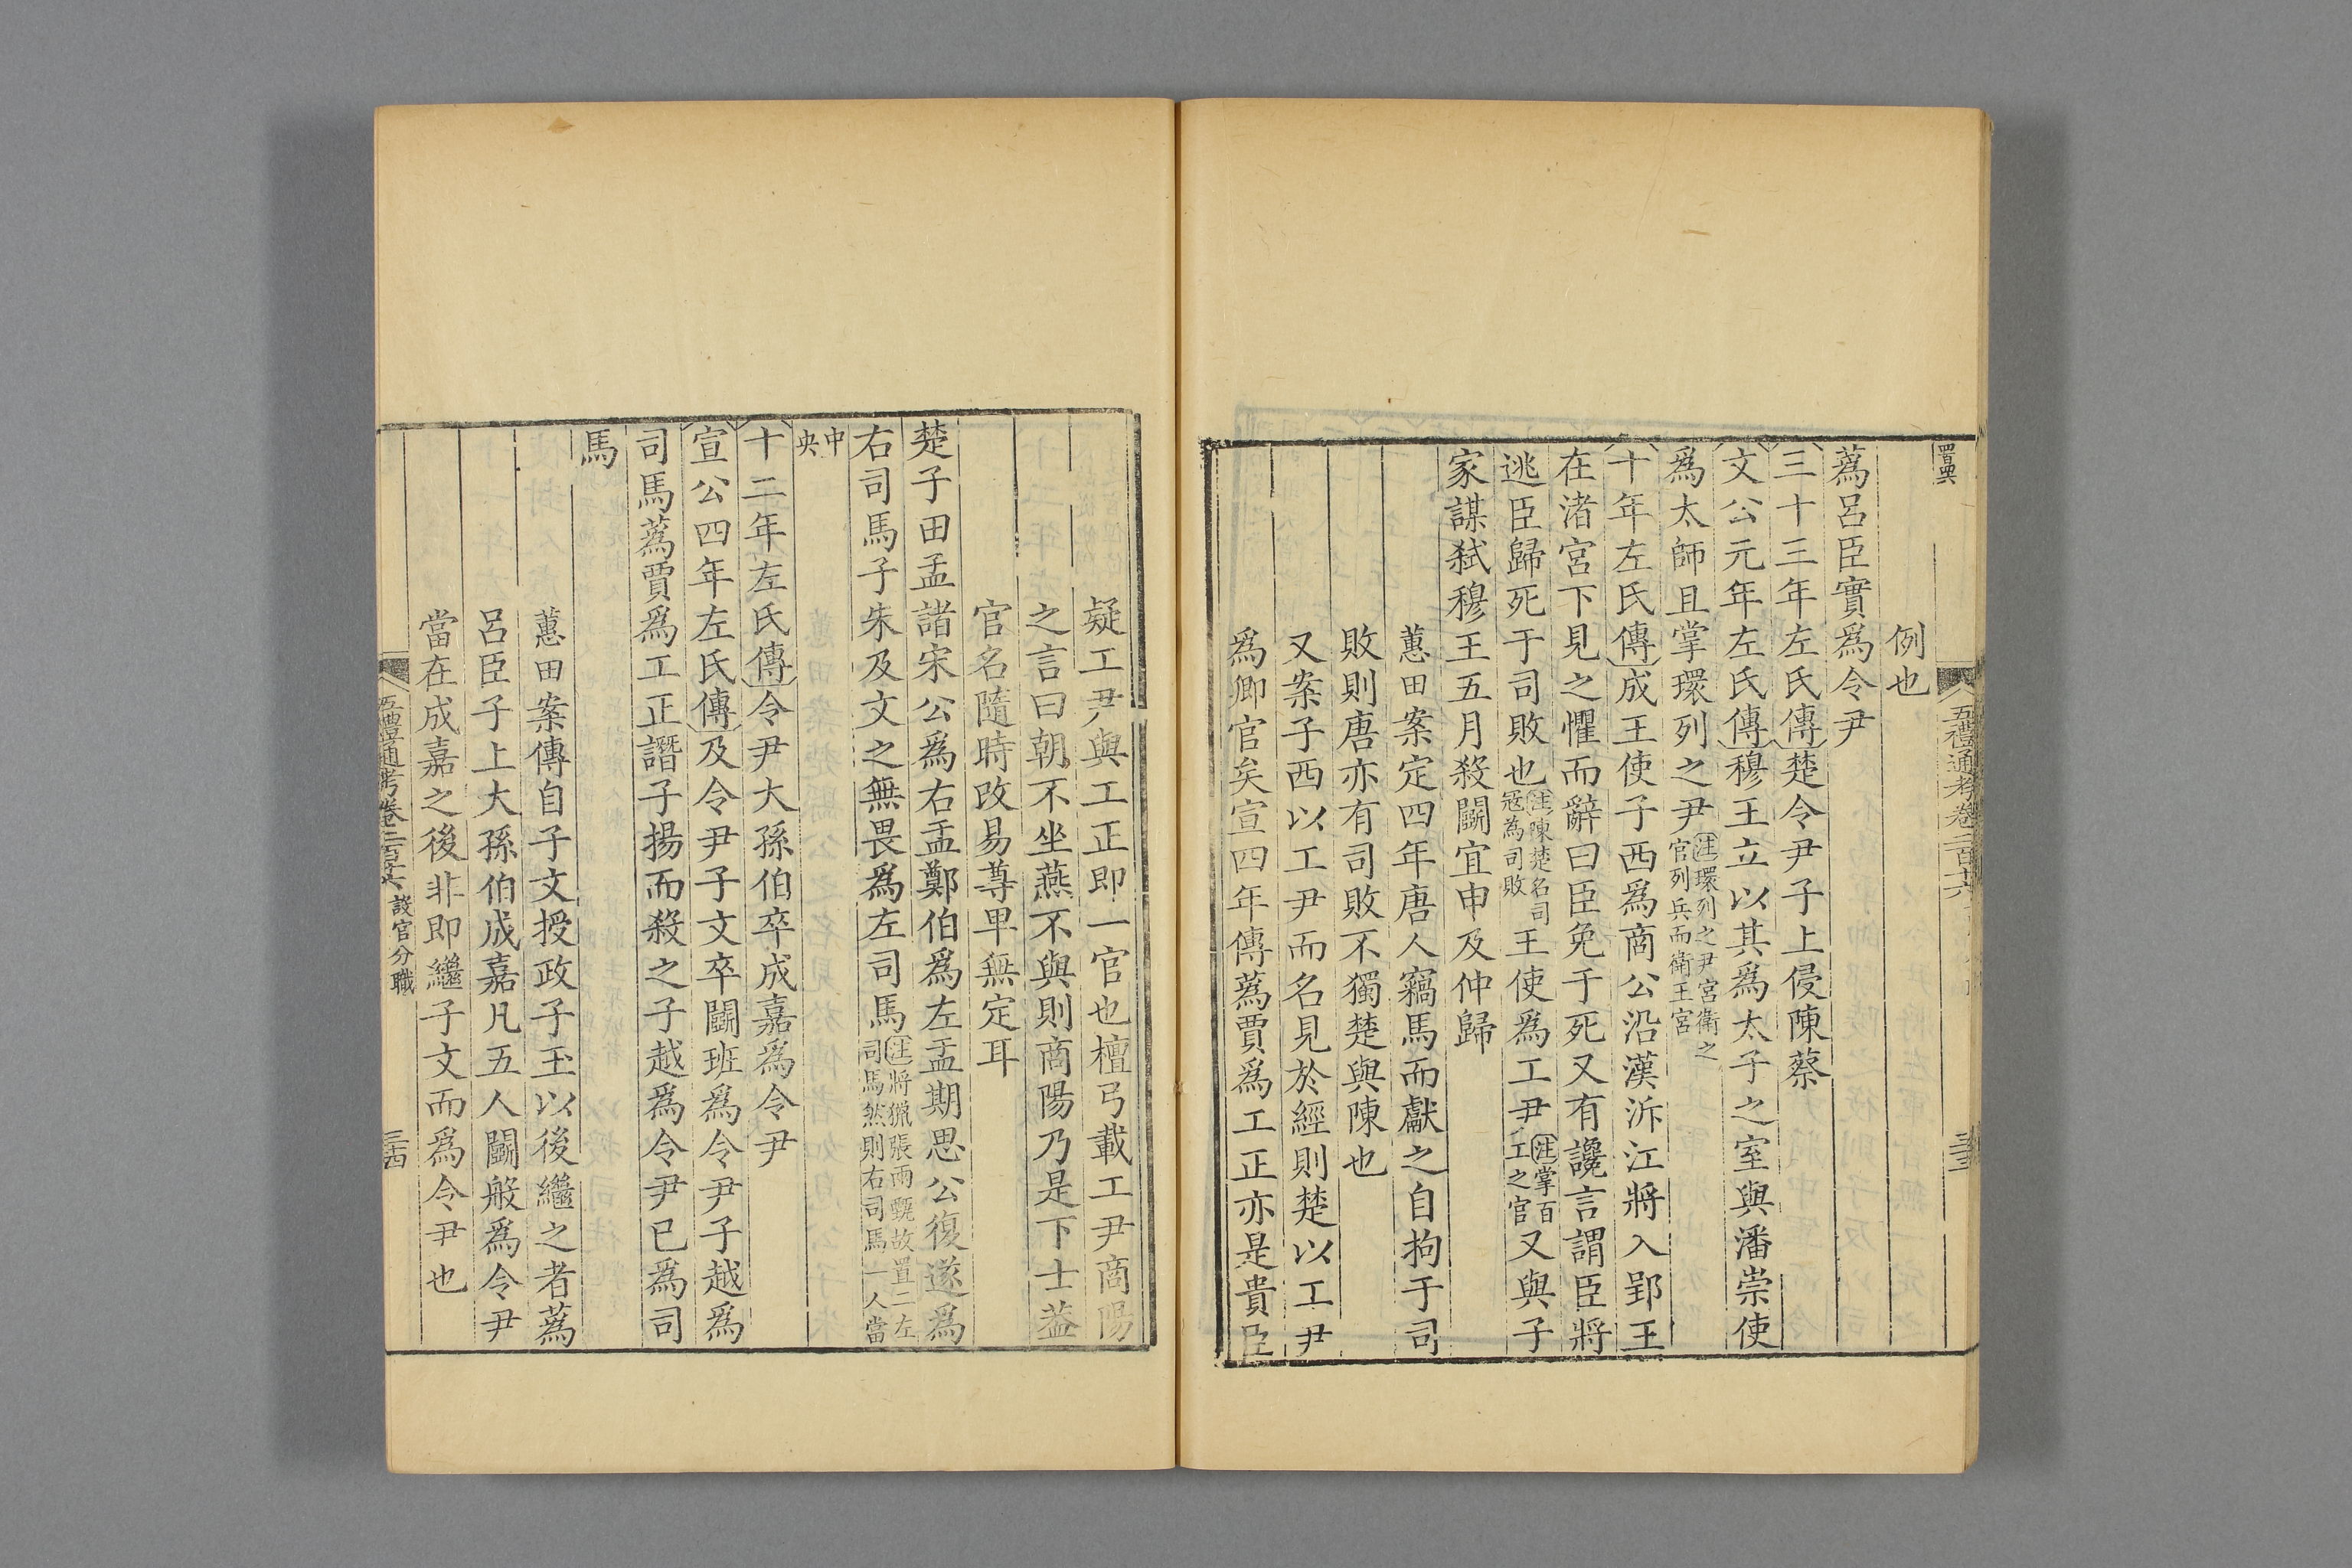 五禮通考卷二百十六
三十三
例也
蒍呂臣實爲令尹
三十三年左氏傳楚令尹子上侵陳蔡
文公元年左氏傳穆王立以其爲太子之室與潘崇使
爲太師且掌環列之尹注環列之尹宮衛之官列兵而衛王宮
十年左氏傳成王使子西爲商公沿漢泝江將入郢王
在渚宮下見之懼而辭曰臣免于死又有讒言謂臣將
逃臣歸死于司敗也注陳楚名司寇為司敗王使爲工尹注掌百工之官又與子
家謀弒穆王五月殺鬭宜申及仲歸
蕙田案定四年唐人竊馬而獻之自拘于司
敗則唐亦有司敗不獨楚與陳也
又案子西以工尹而名見於經則楚以工尹
爲卿官矣宣四年傳蒍賈爲工正亦是貴臣
疑工尹與工正即一官也檀弓載工尹商陽
之言曰朝不坐燕不與則商陽乃是下士蓋
官名隨時改易尊卑無定耳
楚子田孟諸宋公爲右盂鄭伯爲左盂期思公復遂爲
右司馬子朱及文之無畏爲左司馬注將獵張兩甄故置二左司馬然則右司馬一人當
中央
十二年左氏傳令尹大孫伯卒成嘉爲令尹
宣公四年左氏傳及令尹子文卒鬭班爲令尹子越爲
司馬蒍賈爲工正譖子揚而殺之子越爲令尹已爲司
馬
蕙田案傳自子文授政子玉以後繼之者蒍
呂臣子上大孫伯成嘉凡五人鬭般爲令尹
當在成嘉之後非即繼子文而爲令尹也
五禮通考卷二百十六 設官分職
三十四